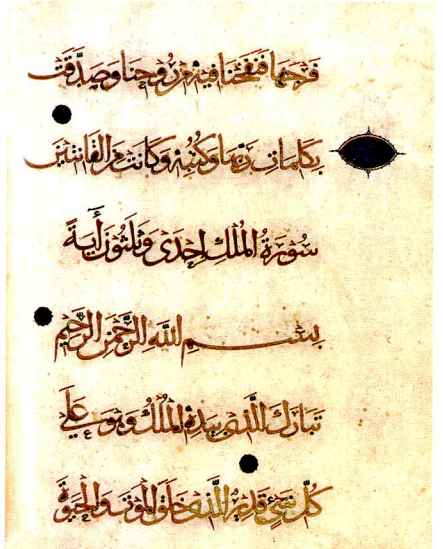 فرجها فنفخنا فيه من روحنا وصدقت
بكلمات ربها وكتبه وكانت من القانتين
سورة الملك احدى وثلثون أية
بسم الله الرحمن الرحيم
تبارك الذي بيده الملك وهو على
كل شئ قدير الذي خلق الموت والحيوة